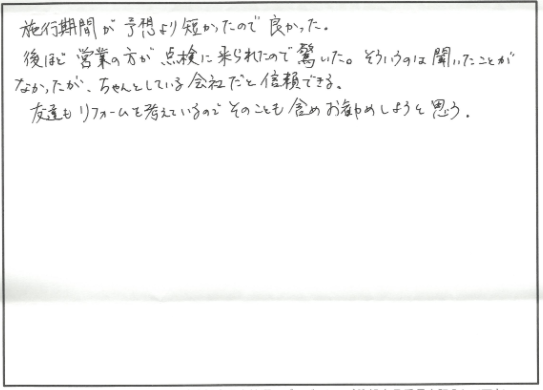 施行期間が予想より短かったので良かった。
後ほど営業の方が点検に来られたので驚いた。そういうのは聞いたことが
なかったが、ちゃんとしている会社だと信頼できる。
友達もリフォームを考えているのでそのことも含めお勧めしようと思う。